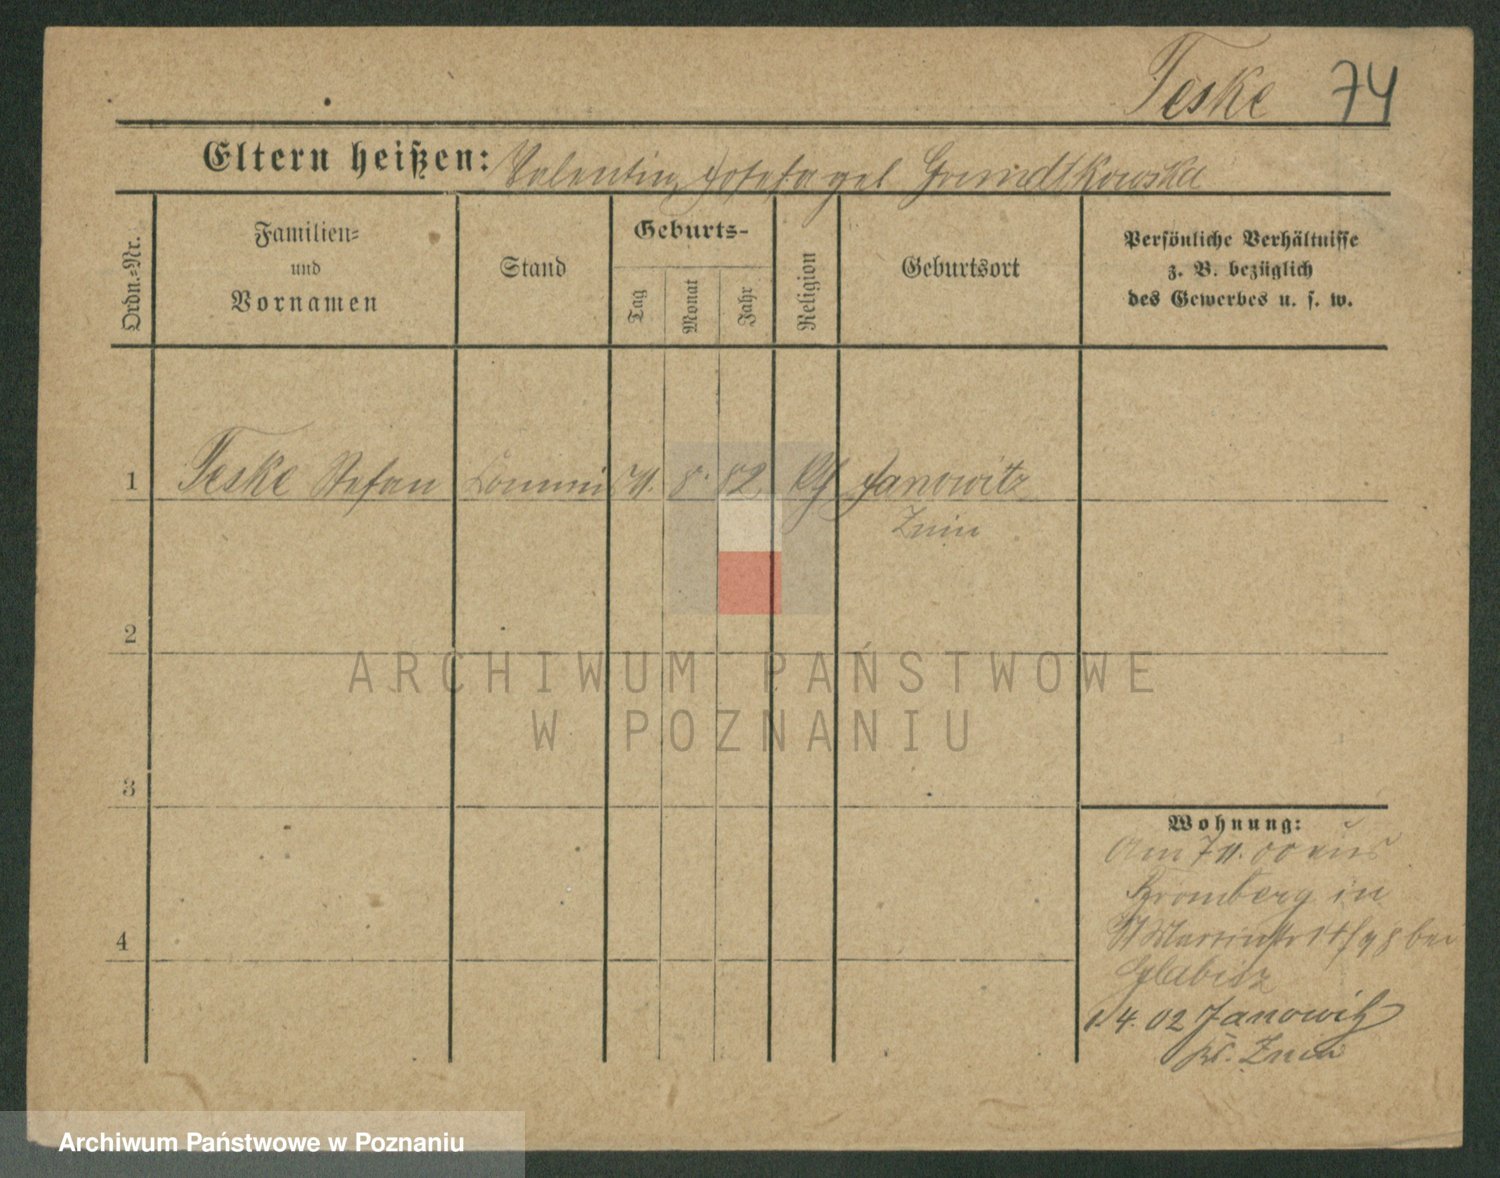 Teske 74
Eltern heißen: Valentin Josefa geb
Ordn.=Nr.
Familien=
und
Vornamen
Stand
Geburts-
Tag
Monat
Jahr
Religion
Geburtsort
Persönliche Verhältnisse
z. B. bezüglich
des Gewerbes u. s. w.
1 Teske Stefan Commis 8. 82 Janowitz
Znin
2
3
4
Wohnung:
Am 7 11. 00 aus
Bromberg in
St Martinstr bei
Glabisz
4. 02 Janowitz
Kr. Znin
ARCHIWUM PAŃSTWOWE
W POZNANIU
Archiwum Państwowe w Poznaniu